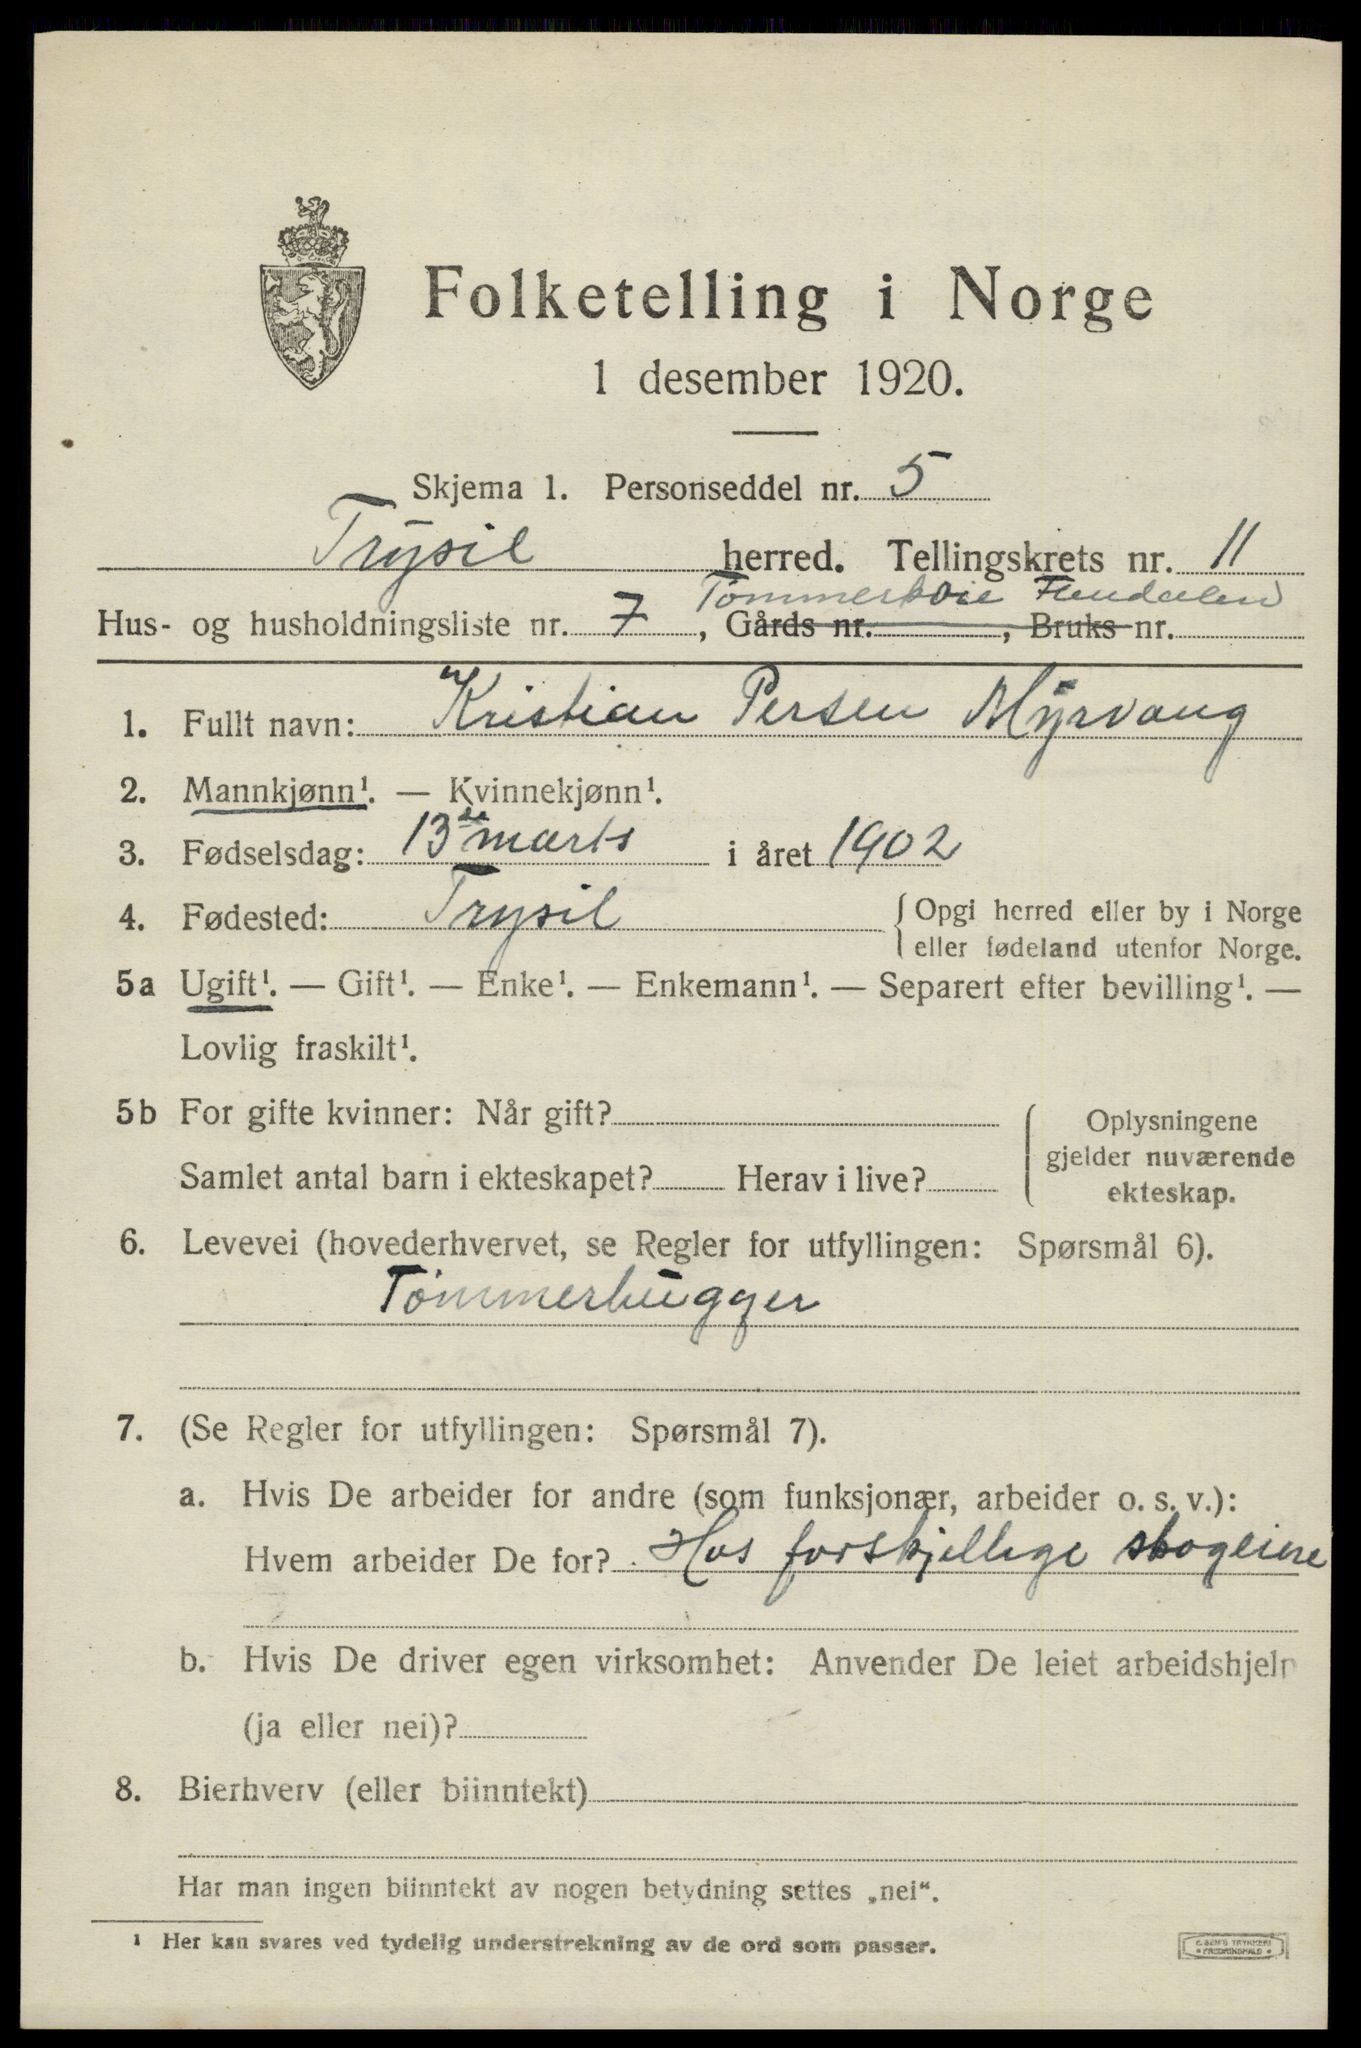 Folketelling i Norge
1 desember 1920.
Skjema 1. Personseddel nr. 5
Trysil herred. Tellingskrets nr. 11
Tømmerkoie Flendalen
Hus- og husholdningsliste nr. 7, Gårds nr. , Bruks nr.
1. Fullt navn: Kristian Persen Myrvang
2. Mannkjønn¹. — Kvinnekjønn¹.
3. Fødselsdag: 13de marts i året 1902
4. Fødested: Trysil { Opgi herred eller by i Norge
eller fødeland utenfor Norge.
5a Ugift¹. — Gift¹. — Enke¹. — Enkemann¹. — Separert efter bevilling¹. —
Lovlig fraskilt¹.
5b For gifte kvinner: Når gift?
Samlet antal barn i ekteskapet? Herav i live?
{ Oplysningene
gjelder nuværende
ekteskap.
6. Levevei (hovederhvervet, se Regler for utfyllingen: Spørsmål 6).
Tømmerhugger
7. (Se Regler for utfyllingen: Spørsmål 7).
a. Hvis De arbeider for andre (som funksjonær, arbeider o. s. v.):
Hvem arbeider De for? Hos forskjellige skogeiere
b. Hvis De driver egen virksomhet: Anvender De leiet arbeidshjelp
(ja eller nei)?
8. Bierhverv (eller biinntekt)
Har man ingen biinntekt av nogen betydning settes „nei“.
¹ Her kan svares ved tydelig understrekning av de ord som passer.